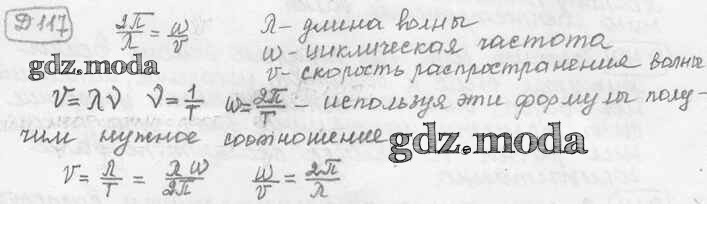 Д 117 2π/λ = ω/v λ - длина волны
ω - циклическая частота
gdz.moda v - скорость распространения волны
V = λν ν = 1/T ω = 2π/T - используя эти формулы полу-
чим нужное соотношение gdz.moda
V = λ/T = λω/2π ω/v = 2π/λ